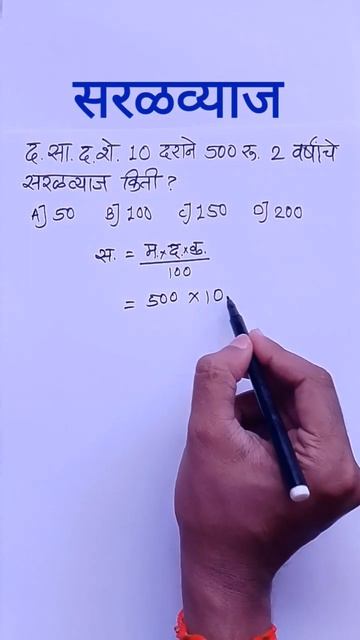 सरळव्याज
द. सा. द. शे. 10 दराने 500 रू. 2 वर्षाचे
सरळव्याज किती?
A] 50 B] 100 C] 150 D] 200
स. = म. × द. × क.
100
= 500 × 10